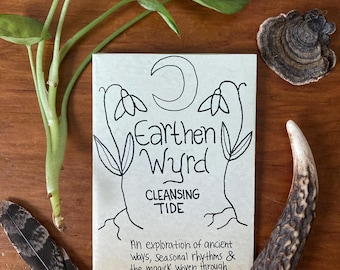 Earthen
Wyrd
CLEANSING
TIDE
An exploration of ancient
ways, seasonal rhythms &
the magick woven through